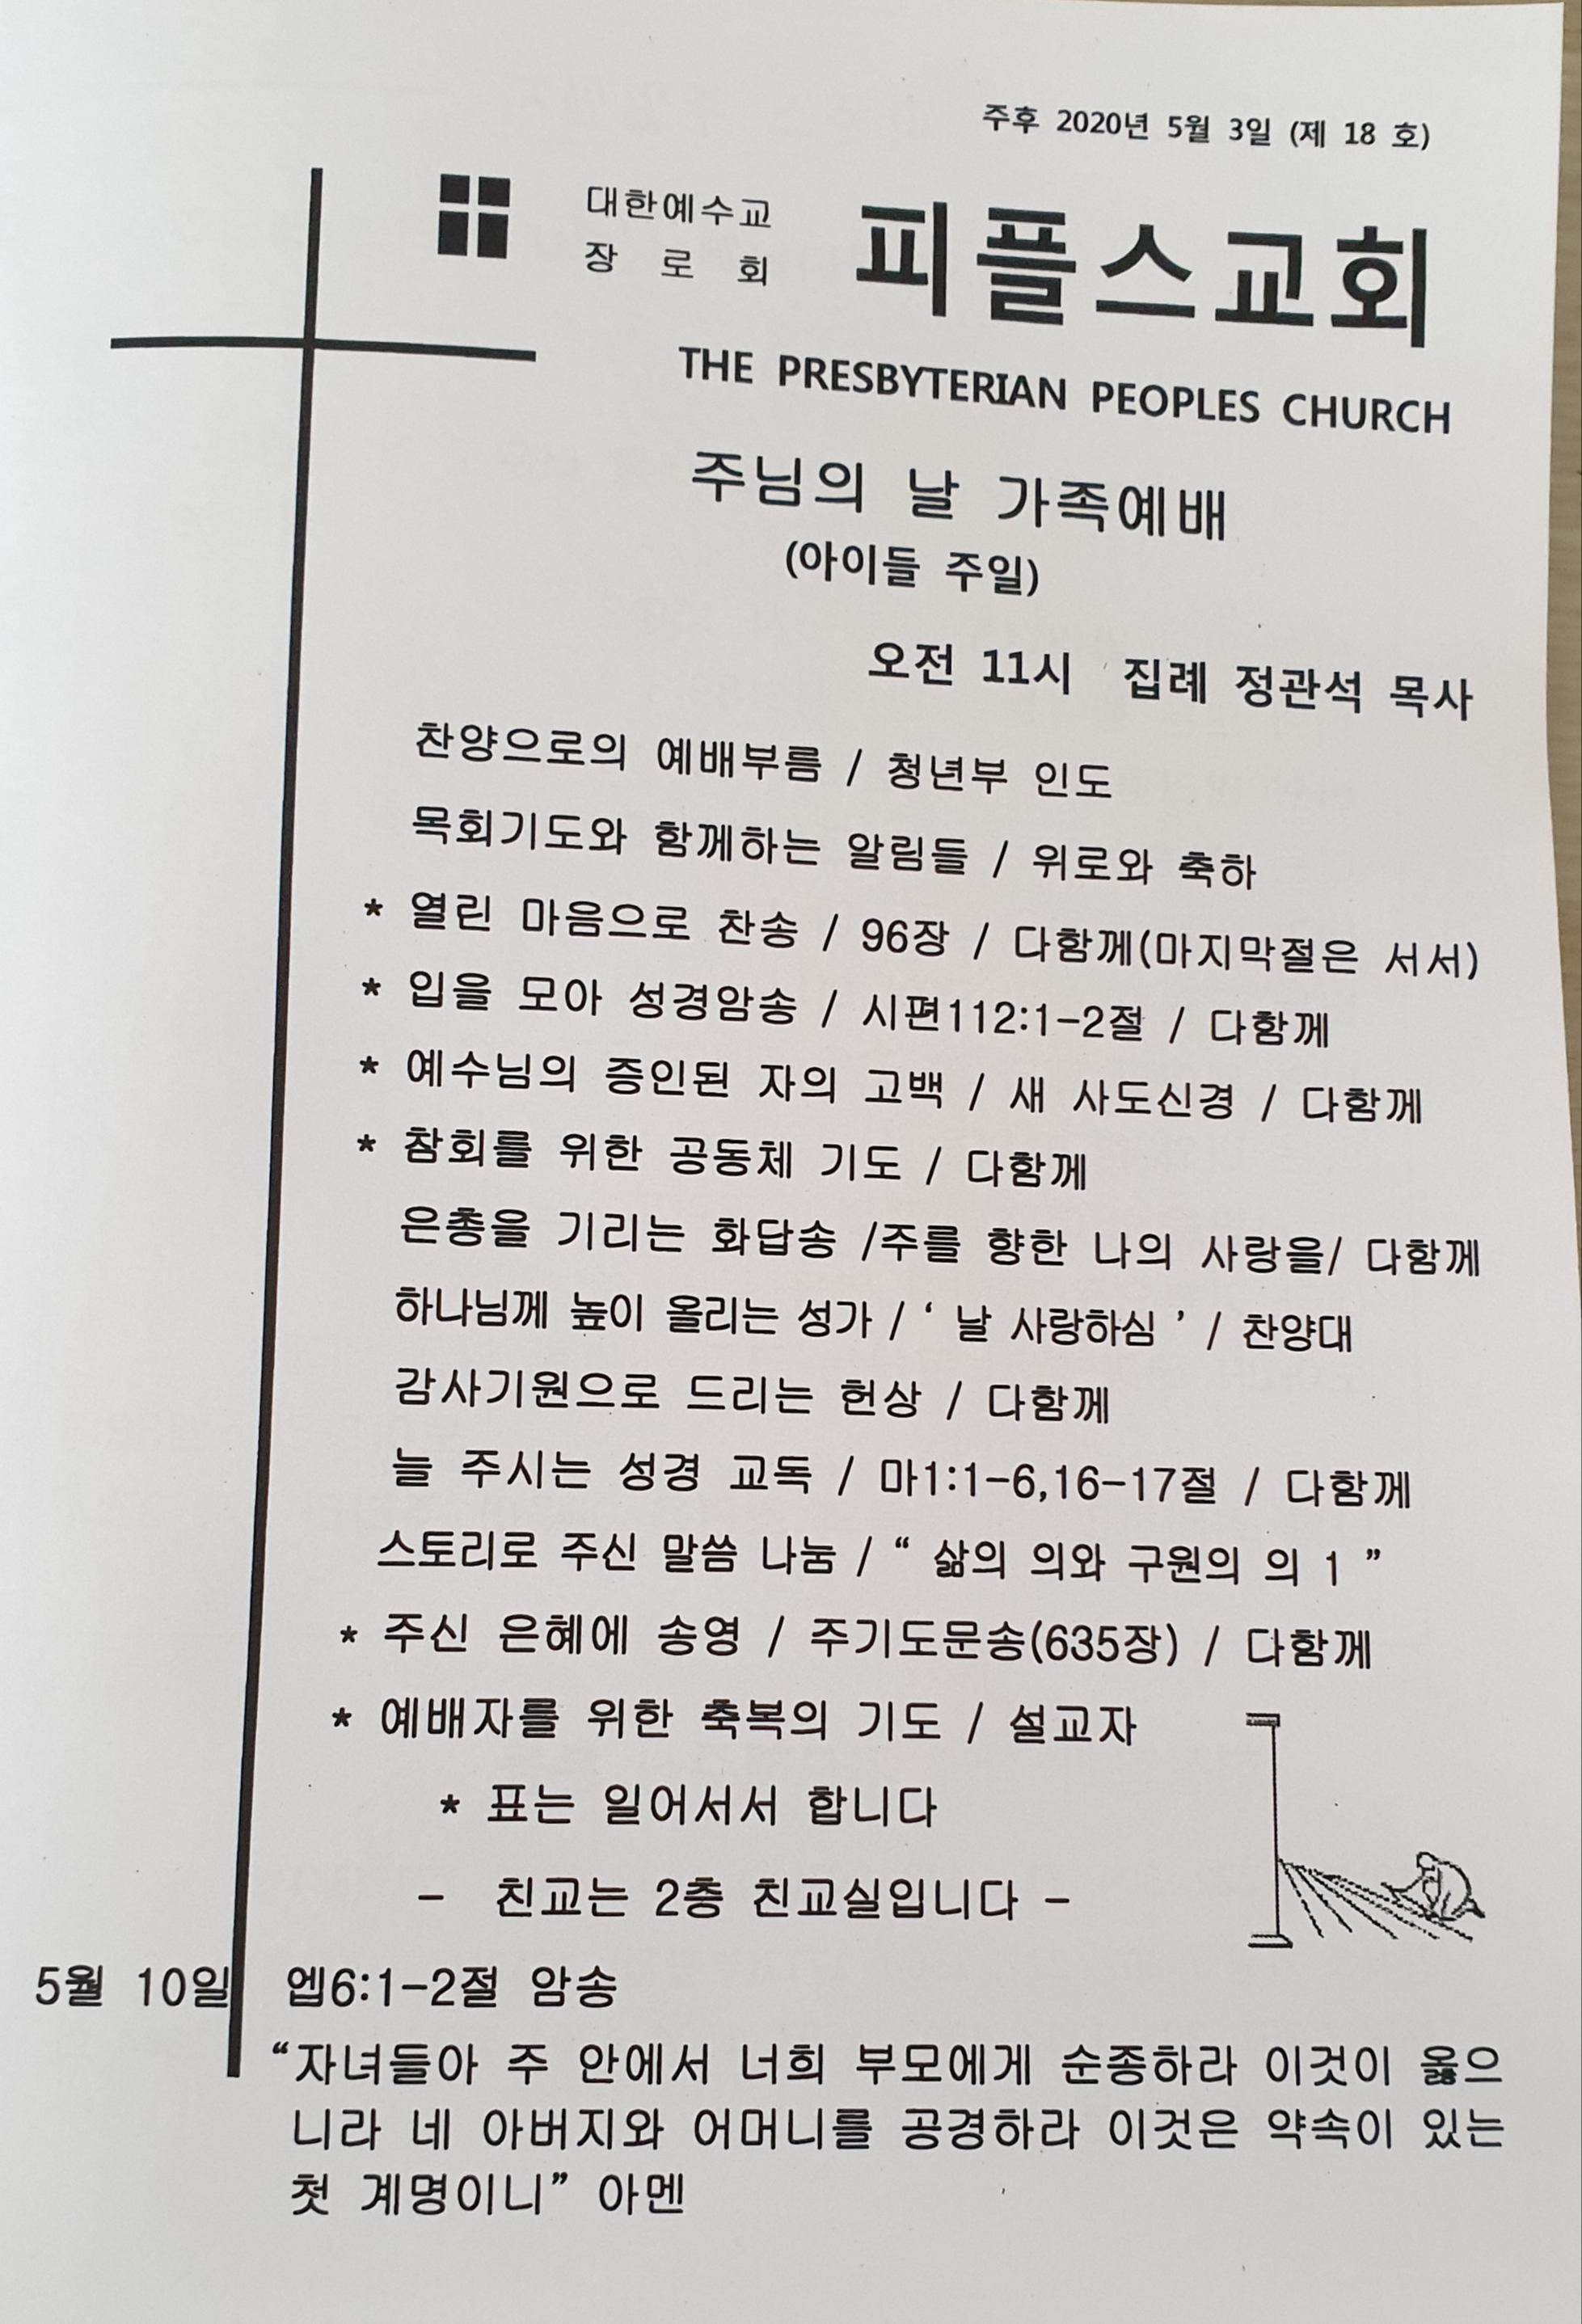 주후 2020년 5월 3일 (제 18 호)
대한예수교
장 로 회
피플스교회
THE PRESBYTERIAN PEOPLES CHURCH
주님의 날 가족예배
(아이들 주일)
오전 11시 집례 정관석 목사
찬양으로의 예배부름 / 청년부 인도
목회기도와 함께하는 알림들 / 위로와 축하
* 열린 마음으로 찬송 / 96장 / 다함께(마지막절은 서서)
* 입을 모아 성경암송 / 시편112:1-2절 / 다함께
* 예수님의 증인된 자의 고백 / 새 사도신경 / 다함께
* 참회를 위한 공동체 기도 / 다함께
은총을 기리는 화답송 /주를 향한 나의 사랑을/ 다함께
하나님께 높이 올리는 성가 / ‘ 날 사랑하심 ’ / 찬양대
감사기원으로 드리는 헌상 / 다함께
늘 주시는 성경 교독 / 마1:1-6,16-17절 / 다함께
스토리로 주신 말씀 나눔 / “ 삶의 의와 구원의 의 1 ”
* 주신 은혜에 송영 / 주기도문송(635장) / 다함께
* 예배자를 위한 축복의 기도 / 설교자
* 표는 일어서서 합니다
- 친교는 2층 친교실입니다 -
5월 10일 엡6:1-2절 암송
“자녀들아 주 안에서 너희 부모에게 순종하라 이것이 옳으
니라 네 아버지와 어머니를 공경하라 이것은 약속이 있는
첫 계명이니” 아멘